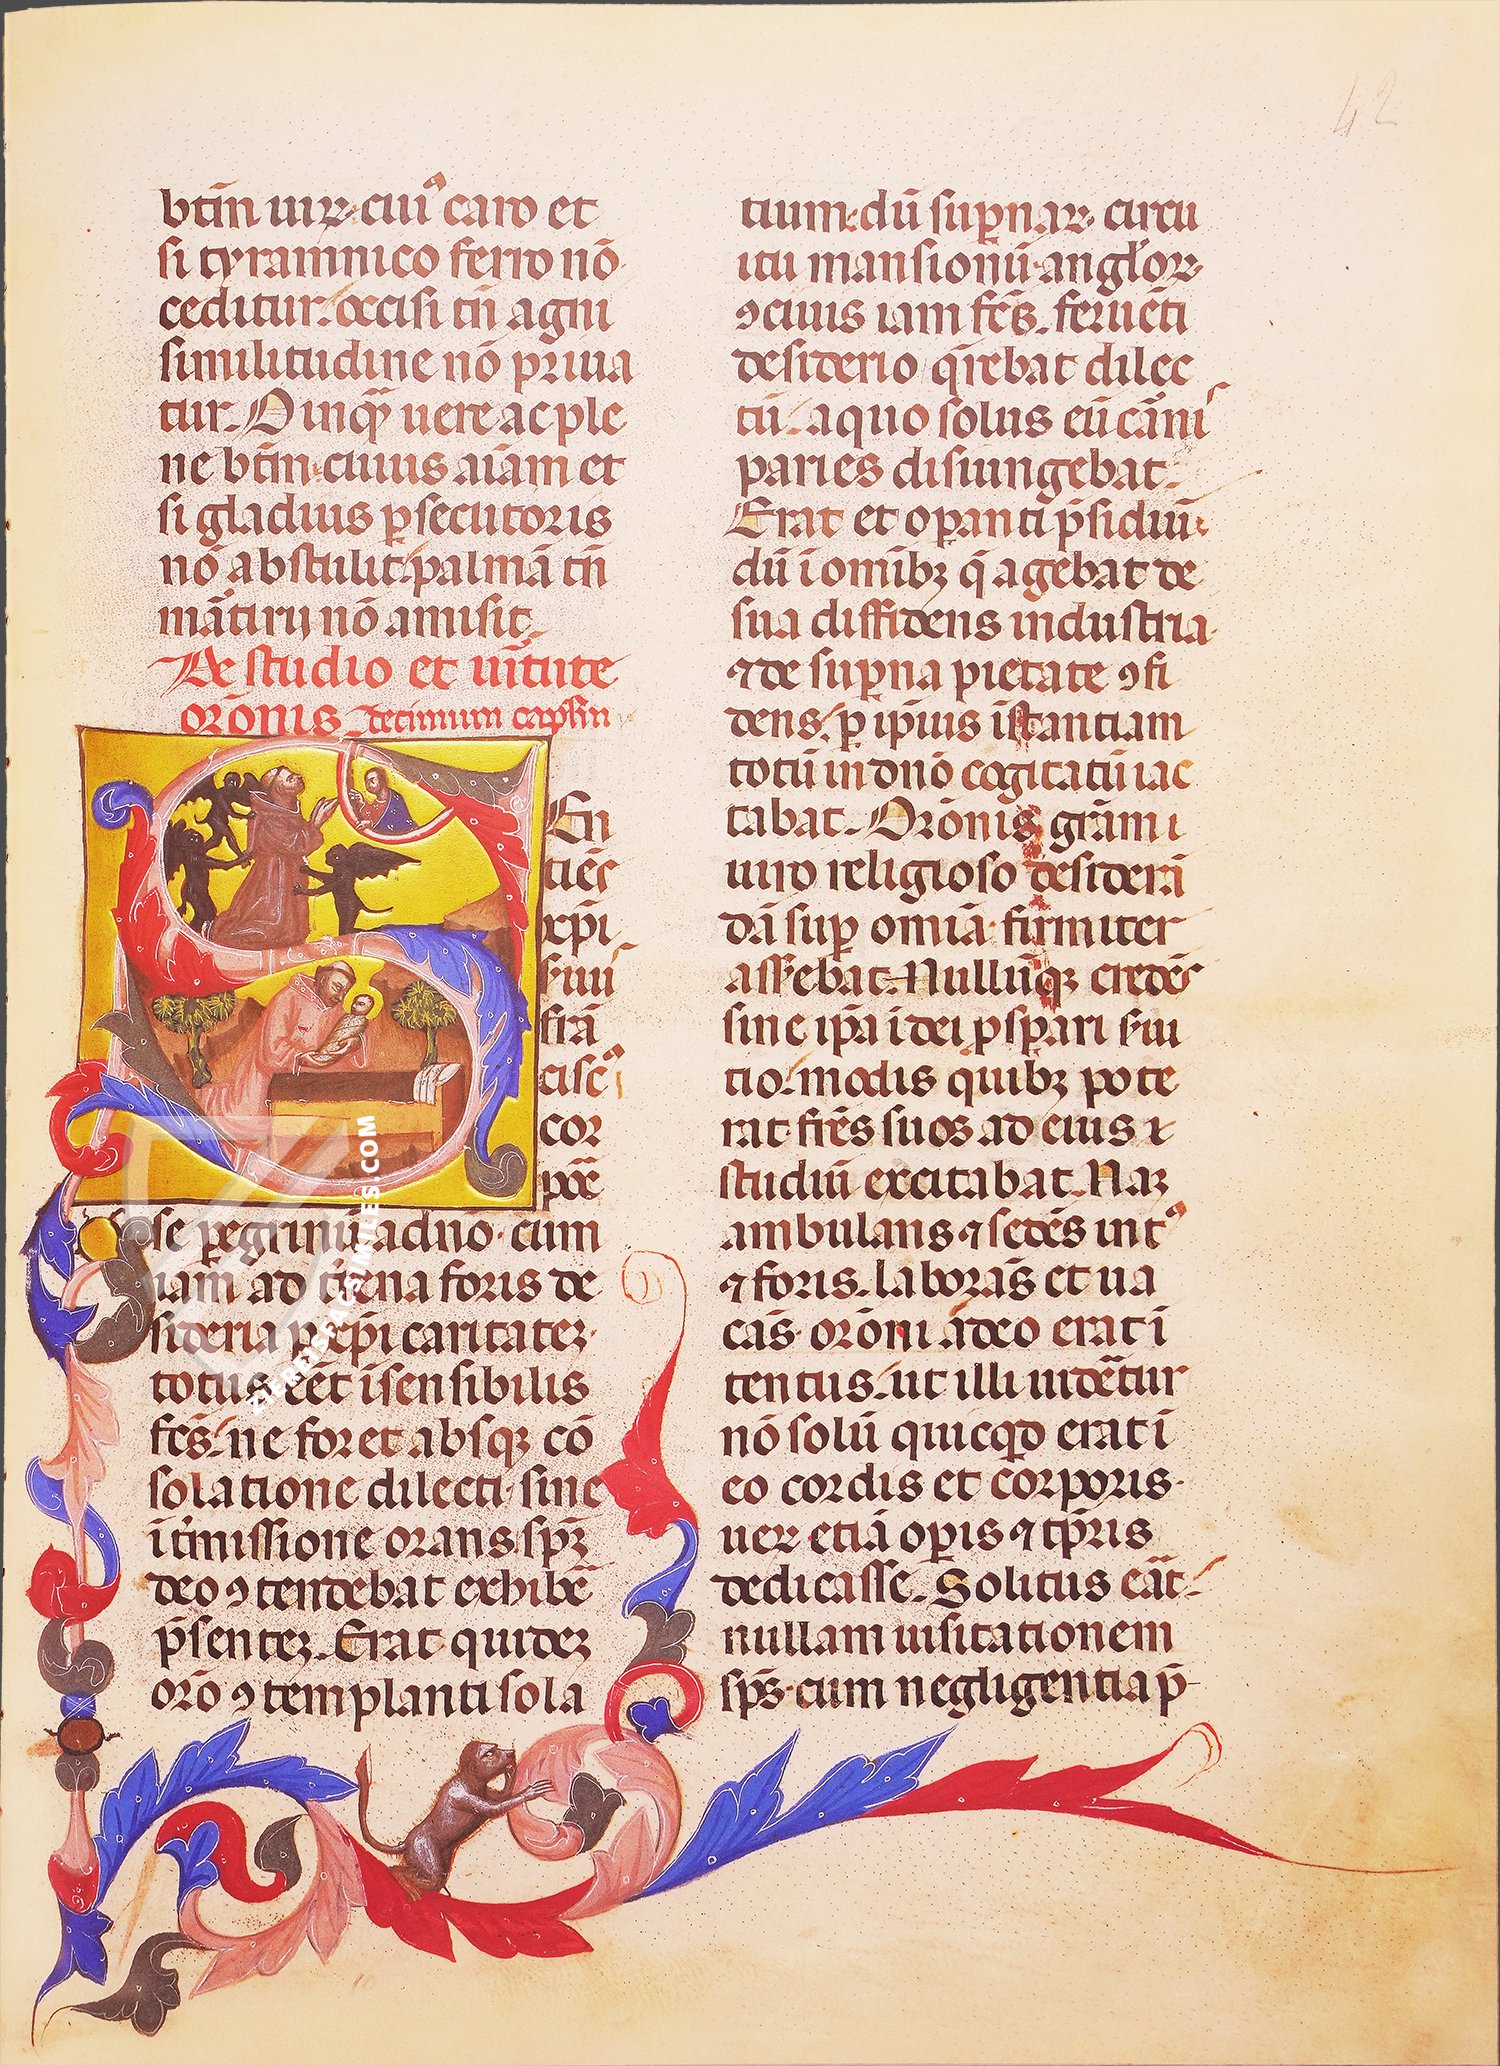 42
btm̄ uirꝝ cuiꝰ caro et
si tyramnico ferro nō
ceditur. occisi tn̄ agni
similitudine nō priua
tur. O inq̄ uere ac ple
ne btm̄ cuius aīam et
si gladius ꝑsecutoris
nō abstulit palmā tn̄
mātirij nō amisit.
De studio et uītute
orōnis decimum caplm̄
En
tiēs
xp̄i
s̄uu
frā
ciscꝰ
cor
poē
se ꝑegrinū a dno cum
iam ad tr̄ena foris de
sideria ꝑ xp̄i caritatez
totus eēt īsensibilis
fc̄s ne foret absqꝫ cō
solatione dilecti sine
īt̄missione orans sp̄ꝫ
deo ꝯtendebat exhibē
p̄sentez. Erat quidez
orō ꝯtemplanti sola
tium dū suꝑnaꝝ circu
itu mansionū anglꝝ
ꝯciuis iam fc̄s. feruēti
desiderio q̄rebat dilec
tū a quo solus eū cāni
paries disiungebat.
Erat et oꝑanti p̄sidiū
dū ī omībꝫ q̄ agebat de
sua diffidens industria
⁊ de suꝑna pietate ꝯfi
dens ꝑ ip̄ius īstantiam
totū in dnō cogitatū iac
tabat. Orōnis grām i
uiro religioso desiderā
dā suꝑ omīa firmiter
assēbat. Nullūqꝫ credēs
sine ip̄a ī dei ꝓsꝑari s̄ui
tio modis quibꝫ pote
rat fr̄es suos ad eius
studiū excitabat. Naꝫ
ambulans ⁊ sedēs intꝰ
⁊ foris. laborās et ua
cās orōni ādeo erat ī
tentus. ut illi uidēatur
nō solū quicqd̄ erat ī
eo cordis et corporis
uerꝫ etiā oꝑis ⁊ tp̄ris
dedicasse. Solitus eāt
nullam uisitationem
sp̄s cum negligentia p̄
ZIEREISFACSIMILES.COM